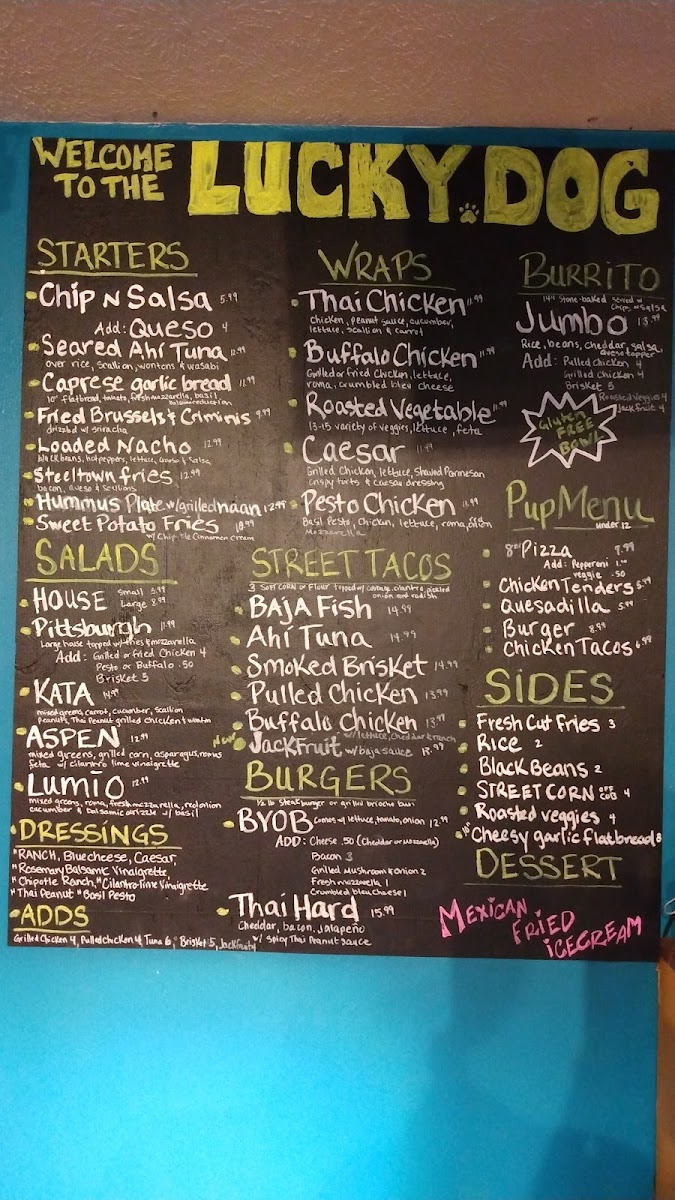 WELCOME TO THE LUCKY DOG
STARTERS
Chip N Salsa 5.99
Add: Queso 4
Seared Ahi Tuna 12.99
over rice, scallion, wontons & wasabi
Caprese garlic bread 11.99
10" flatbread, tomato, fresh mozzarella, basil
Balsamic reduction
Fried Brussels & Criminis 9.99
drizzled w/ sriracha
Loaded Nacho 12.99
black beans, hot peppers, lettuce, queso & salsa
Steeltown fries 12.99
bacon, queso & scallions
Hummus Plate w/ grilled naan 12.99
Sweet Potato Fries 10.99
w/ Chipotle Cinnamon Cream
SALADS
HOUSE Small 5.99
Large 8.99
Pittsburgh 11.99
Large house topped w/ fries & mozzarella
Add: Grilled or fried Chicken 4
Pesto or Buffalo .50
Brisket 5
KATA 14.99
mixed greens, carrot, cucumber, scallion
peanuts, Thai Peanut grilled chicken & wonton
ASPEN 12.99
mixed greens, grilled corn, asparagus, romas
feta w/ cilantro lime vinaigrette
Lumio 12.99
mixed greens, roma, fresh mozzarella, red onion
cucumber & balsamic drizzle w/ basil
DRESSINGS
"RANCH, Bluecheese, Caesar,
"Rosemary Balsamic Vinaigrette
"Chipotle Ranch, "Cilantro-Lime Vinaigrette
"Thai Peanut "Basil Pesto
ADDS
Grilled Chicken 4, Pulled Chicken 4, Tuna 6, Brisket 5, Jackfruit 4
WRAPS
Thai Chicken 11.99
Chicken, peanut sauce, cucumber,
lettuce, scallion & carrot
Buffalo Chicken 11.99
Grilled or fried Chicken, lettuce,
roma, crumbled bleu cheese
Roasted Vegetable 11.99
13-15 variety of veggies, lettuce, feta
Caesar 11.99
Grilled Chicken, lettuce, Shaved Parmesan
crispy torts & caesar dressing
Pesto Chicken 11.99
Basil Pesto, Chicken, lettuce, roma, onion
Mozzarella
STREET TACOS
3 Soft CORN or Flour topped w/ cabbage, cilantro, pickled
onion and radish
BAJA Fish 14.99
Ahi Tuna 14.99
Smoked Brisket 14.99
Pulled Chicken 13.99
Buffalo Chicken 13.99
w/ lettuce, cheddar & ranch
New JACKFRUIT w/ baja sauce 13.99
BURGERS
1/2 lb Steak burger on grilled brioche bun
BYOB Comes w/ lettuce, tomato, onion 12.99
ADD: Cheese .50 (Cheddar or Mozzarella)
Bacon 3
Grilled Mushroom & onion 2
Fresh mozzarella 1
Crumbled bleu Cheese 1
Thai Hard 15.99
Cheddar, bacon, jalapeño
w/ Spicy Thai Peanut Sauce
BURRITO
14" Stone-baked served w
Chips & Salsa
Jumbo 13.99
Rice, beans, cheddar, salsa,
Queso topper
Add: Pulled Chicken 4
Grilled Chicken 4
Brisket 5
Roasted Veggies 4
Jackfruit 4
Gluten FREE BOWL
Pup Menu
under 12
8" Pizza 7.99
Add: Pepperoni 1.00
veggie .50
Chicken Tenders 5.99
Quesadilla 5.99
Burger 8.99
Chicken Tacos 6.99
SIDES
Fresh Cut Fries 3
Rice 2
Black Beans 2
STREET CORN OFF COB 4
Roasted veggies 4
10" Cheesy garlic flatbread 8
DESSERT
MEXICAN FRIED ICECREAM